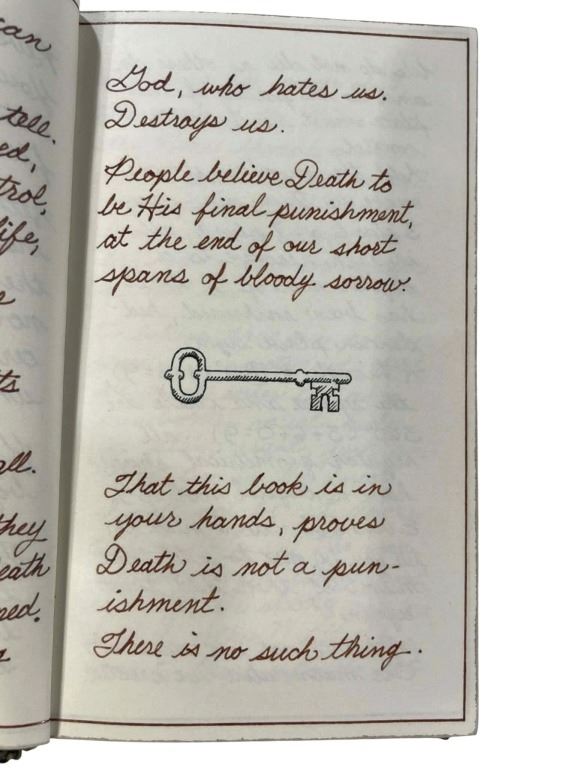 can
tell.
ed,
trol,
life,
e
ts
all.
they
eath
ned.
God, who hates us.
Destroys us.
People believe Death to
be His final punishment,
at the end of our short
spans of bloody sorrow.
That this book is in
your hands, proves
Death is not a pun-
ishment.
There is no such thing.